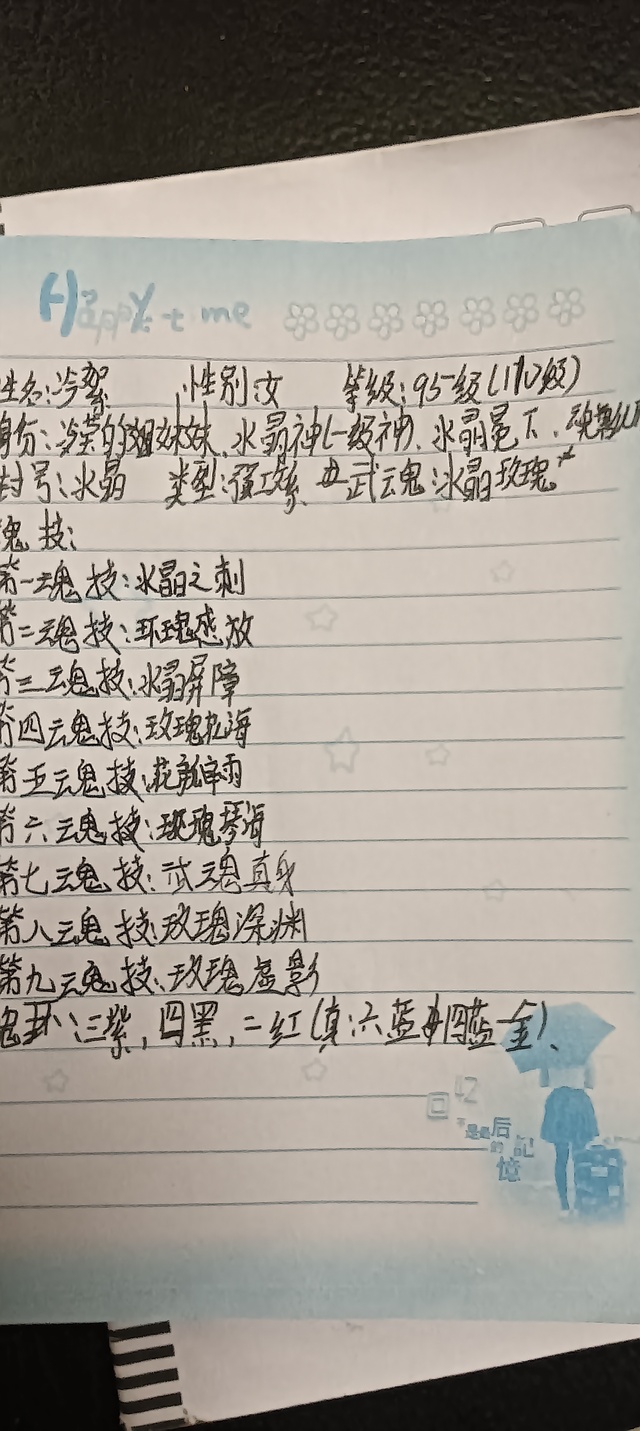 Happy time
姓名:冷絮 性别:女 等级:95级(110级)
身份:的妹妹,水晶神(一级神),水晶冕下,
封号:水晶 类型:强攻系 武魂:水晶玫瑰
魂技:
第一魂技:水晶之刺
第二魂技:玫瑰感放
第三魂技:水晶屏障
第四魂技:玫瑰花海
第五魂技:花瓣雨
第六魂技:玫瑰琴海
第七魂技:武魂真身
第八魂技:玫瑰深渊
第九魂技:玫瑰虚影
魂环:三紫,四黑,二红(真:六蓝四蓝金)、
回 忆
不是最后
的記
憶